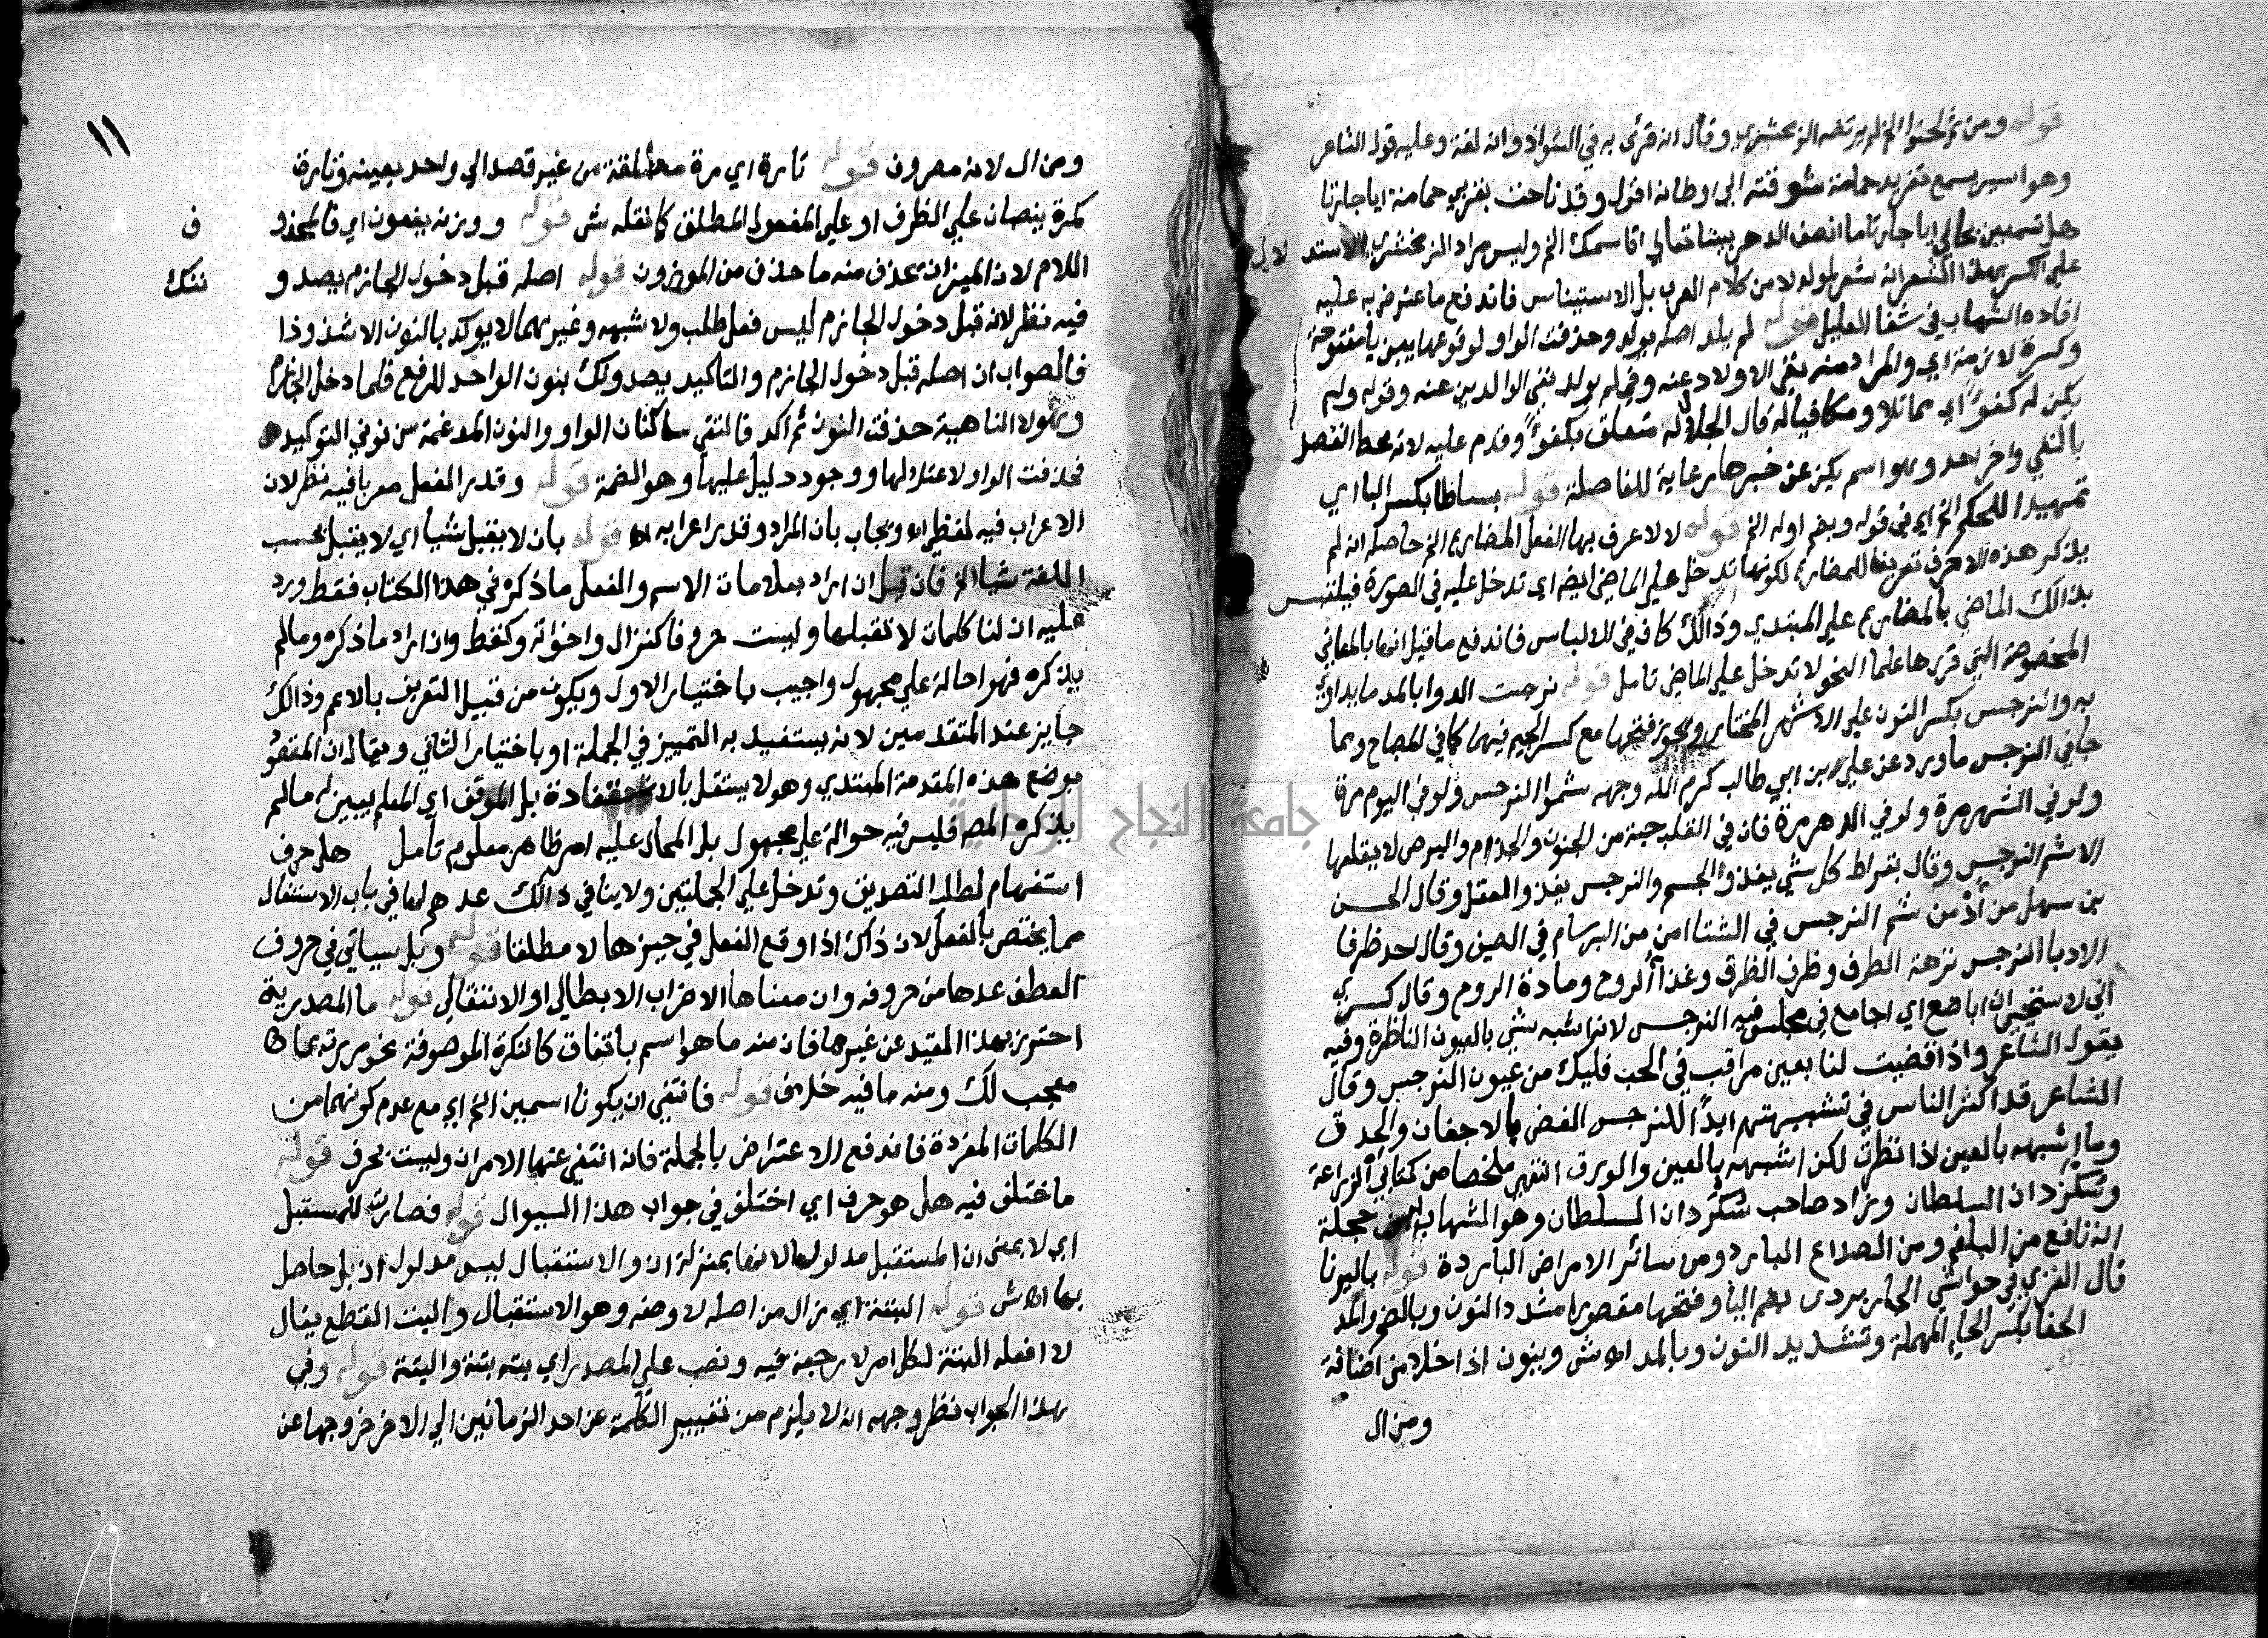 قوله ومن ثم لحنوا الخ لم يرتضه الزمخشري وقال انه قرئ به في الشواذ وانه لغة وعليه قول الشاعر
وهو اسير سمع تغريد حمامة شوقته الى اوطانه اقول وقد ناحت بقربي حمامة ايا جارتا
هل تسمعين بحالي ايا جارتا ما انصف الدهر بيننا تعالي اقاسمك الخ وليس مراد الزمخشري الاستدلال
على الكسر بهذا الشعر لانه شعر مولد لا من كلام العرب بل الاستيناس فاندفع ما عترض به عليه
افاده الشهاب في شفا الغليل قوله لم يلد اصله يولد وحذفت الواو لوقوعها بين يا مفتوحة
وكسرة لازمة اي والمراد منه نفي الاولاد عنه وفي لم يولد نفي الوالدين عنه وقوله ولم
يكن له كفوًا اي مماثلا ومكافيا له قال الجلال له متعلق بكفوًا وقدم عليه لانه محط القصد
بالنفي واخر احد وهو اسم يكن عن خبرها رعاية للفاصلة قوله بساطا بكسر البا اي
تمهيدا للحكم الخ اي في قوله وبضم اوله الخ قوله لا لاعرف بها الفعل المضارع الخ حاصله انه لم
يذكر هذه الاحرف تعريفا للمضارع لكونها تدخل على الماضي ايضا اي تدخل عليه في الصورة فيلتبس
بذالك الماضي بالمضارع على المبتدي وذالك كاف في الالباس فاندفع ما قيل انها بالمعاني
المخصوصة التي قررها علما النحو لا تدخل على الماضي تامل قوله نرجست الدوا بالمد ما يداوى
به والنرجس بكسر النون على الاشهر المختار ويجوز فتحها مع كسر الجيم فيهما كما في المصباح ومما
جا في النرجس ما ورد عن علي بن ابي طالب كرم الله وجهه شموا النرجس ولو في اليوم مرة
ولو في الشهر مرة ولو في الدهر مرة فان في القلب حبة من الجنون والجذام والبرص لا يقلعها
الا شم النرجس وقال بقراط كل شي يغذو الجسم والنرجس يغذو العقل وقال الحسن
بن سهل من ادمن شم النرجس في الشتا امن من البرسام في الصيف وقال احد ظرفا
الادبا النرجس نزهة الطرف وظرف الظرف وغذا الروح ومادة الروح وقال كسرى
اني لاستحي ان اباضع اي اجامع في مجلس فيه النرجس لانه اشبه شي بالعيون الناظرة وفيه
يقول الشاعر واذا قضيت لنا بعين مراقب في الحب فليك من عيون النرجس وقال
الشاعر قد اكثر الناس في تشبيههم ابدًا للنرجس الغض بالاجفان والحدق
وما اشبهه بالعين اذا نظرت لكن اشبهه بالعين والورق انتهى ملخصا من كتابي الزراعة
وسكردان السلطان وزاد صاحب سكردان السلطان وهو الشهاب بن حجلة
انه نافع من البلغم ومن الصداع البارد ومن سائر الامراض الباردة قوله باليرنا
قال الغزي في حواشي الجاربردى بضم اليا وفتحها مقصورا مشدد النون وبالضم والمد
الحنا بكسر الحاء المهملة وتشديد النون وبالمد اه ش وينون اذا خلا من اضافة
ومن ال
١١
ومن ال لانه مصروف قوله تارة اي مرة مطلقة من غير قصد الى واحد بعينه وتارة
كمرة ينصبان على الظرف او على المفعول المطلق كما نقله ش قوله ووزنه يفعون اي فالمحذوف
اللام لان الميزان يحذف منه ما حذف من الموزون قوله اصله قبل دخول الجازم يصدوننك
فيه نظر لانه قبل دخول الجازم ليس فعل طلب ولا شبهه وغيرهما لا يوكد بالنون الا شذوذا
فالصواب ان اصله قبل دخول الجازم والتاكيد يصدونك بنون الواحد للرفع فلما دخل الجازم
وهو لا الناهية حذفت النون ثم اكد فالتقى ساكنان الواو والنون المدغمة من نوني التوكيد
فحذفت الواو لاعتلالها ووجود دليل عليها وهو الضمة قوله وقدر الفعل معربا فيه نظر لان
الاعراب فيه لفظي اه ويجاب بان المراد وقدر اعرابه اه قوله بان لا يقبل شيا اي لا يقبل بحسب
اللغة شيا الخ فان قيل ان اراد بعلامات الاسم والفعل ما ذكره في هذا الكتاب فقط ورد
عليه ان لنا كلمات لا تقبلها وليست حروفا كنزال واخواته وكقط وان اراد ما ذكره وما لم
يذكره فهو احالة على مجهول واجيب باختيار الاول ويكون من قبيل التعريف بالاعم وذالك
جايز عند المتقدمين لانه يستفيد به التمييز في الجملة او باختيار الثاني ويقال ان المقصود
بوضع هذه المقدمة المبتدي وهو لا يستقل بالاستفادة بل الموقف اي المعلم يبين له ما لم
يذكره المص فليس فيه حوالة على مجهول بل المحال عليه امر ظاهر معلوم تأمل هل حرف
استفهام لطلب التصديق وتدخل على الجملتين ولا ينافي ذالك عدهم لها في باب الاشتغال
مما يختص بالفعل لان ذالك اذا وقع الفعل في حيزها لا مطلقا قوله وبل سياتي في حروف
العطف عدها من حروفه وان معناها الاضراب الابطالي او الانتقالي قوله ما المصدرية
احترز بهذا القيد عن غيرها فان منه ما هو اسم باتفاق كالنكرة الموصوفة نحو مررت بما
معجب لك ومنه ما فيه خلاف قوله فانتفى ان يكونا اسمين الخ اي مع عدم كونهما من
الكلمات المفردة فاندفع الاعتراض بالجملة فانه انتفى عنها الامران وليست بحرف قوله
ما ختلف فيه هل هو حرف اي اختلف في جواب هذا السيوال قوله فصارت للمستقبل
اي لا بمعنى ان المستقبل مدلولها لانها بمنزلة ان والاستقبال ليس مدلول ان بل حاصل
بها اه ش قوله البتة اي زال من اصله لا وصفه وهو الاستقبال والبت القطع يقال
لا افعله البتة لكل امر لا رجعة فيه ونصب على المصدر اي بته بتة والبتة قوله وفي
هذا الجواب نظر وجهه انه لا يلزم من تغيير الكلمة عن احد الزمانين الى الاخر خروجها عن